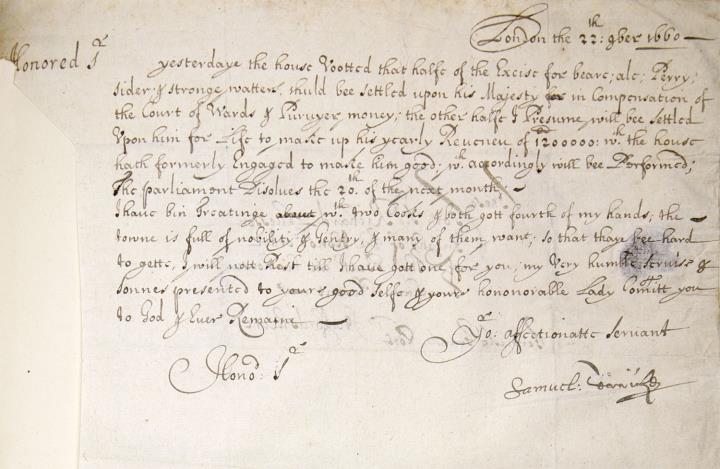 London the 22th: 9ber 1660
Honored Sr
yesterdaye the house Vootted that halfe of the Excise for beare; ale; Perry;
sider; & stronge watters, shuld bee settled upon his Majesty for in Compensation of
the Court of Wards & Puruyer money; the other halfe I Presume will bee settled
Vpon him for Life to make up his yearly Reueneu of 1200000: wch the house
hath formerly Engaged to make him good; wch accordingly will bee Performed;
The parliament Disolues the 20th. of the next month;
I haue bin treatinge about wth two Cookes & both gott fourth of my hands; the
towne is full of nobility & Gentry, & many of them want; so that thay bee hard
to gette, I will nott Rest till I haue gott one for you; my Very humble seruise &
sonnes presented to youre good selfe & youre hononorable Lady Comitt you
to God & Ever Remaine
Yor. affectionatte servant
Honod: Sr
Samuel: